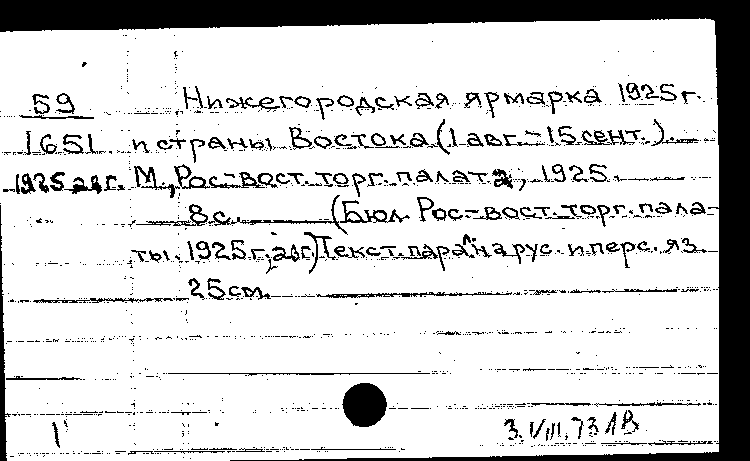 59 Нижегородская ярмарка 1925 г.
1651 и страны Востока (1 авг. - 15 сент.).
1925 авг. М., Рос-вост. торг. палата, 1925.
8 с. (Бюл. Рос-вост. торг. пала-
ты. 1925 г., авг.) Текст. парал. на рус. и перс. яз.
25 см.
1 3.VIII.73 ЛВ